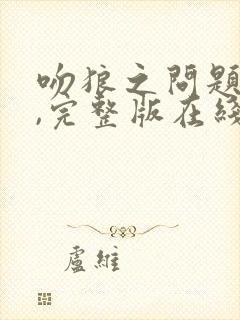 吻狼之問題
,完整版在綫
盧維